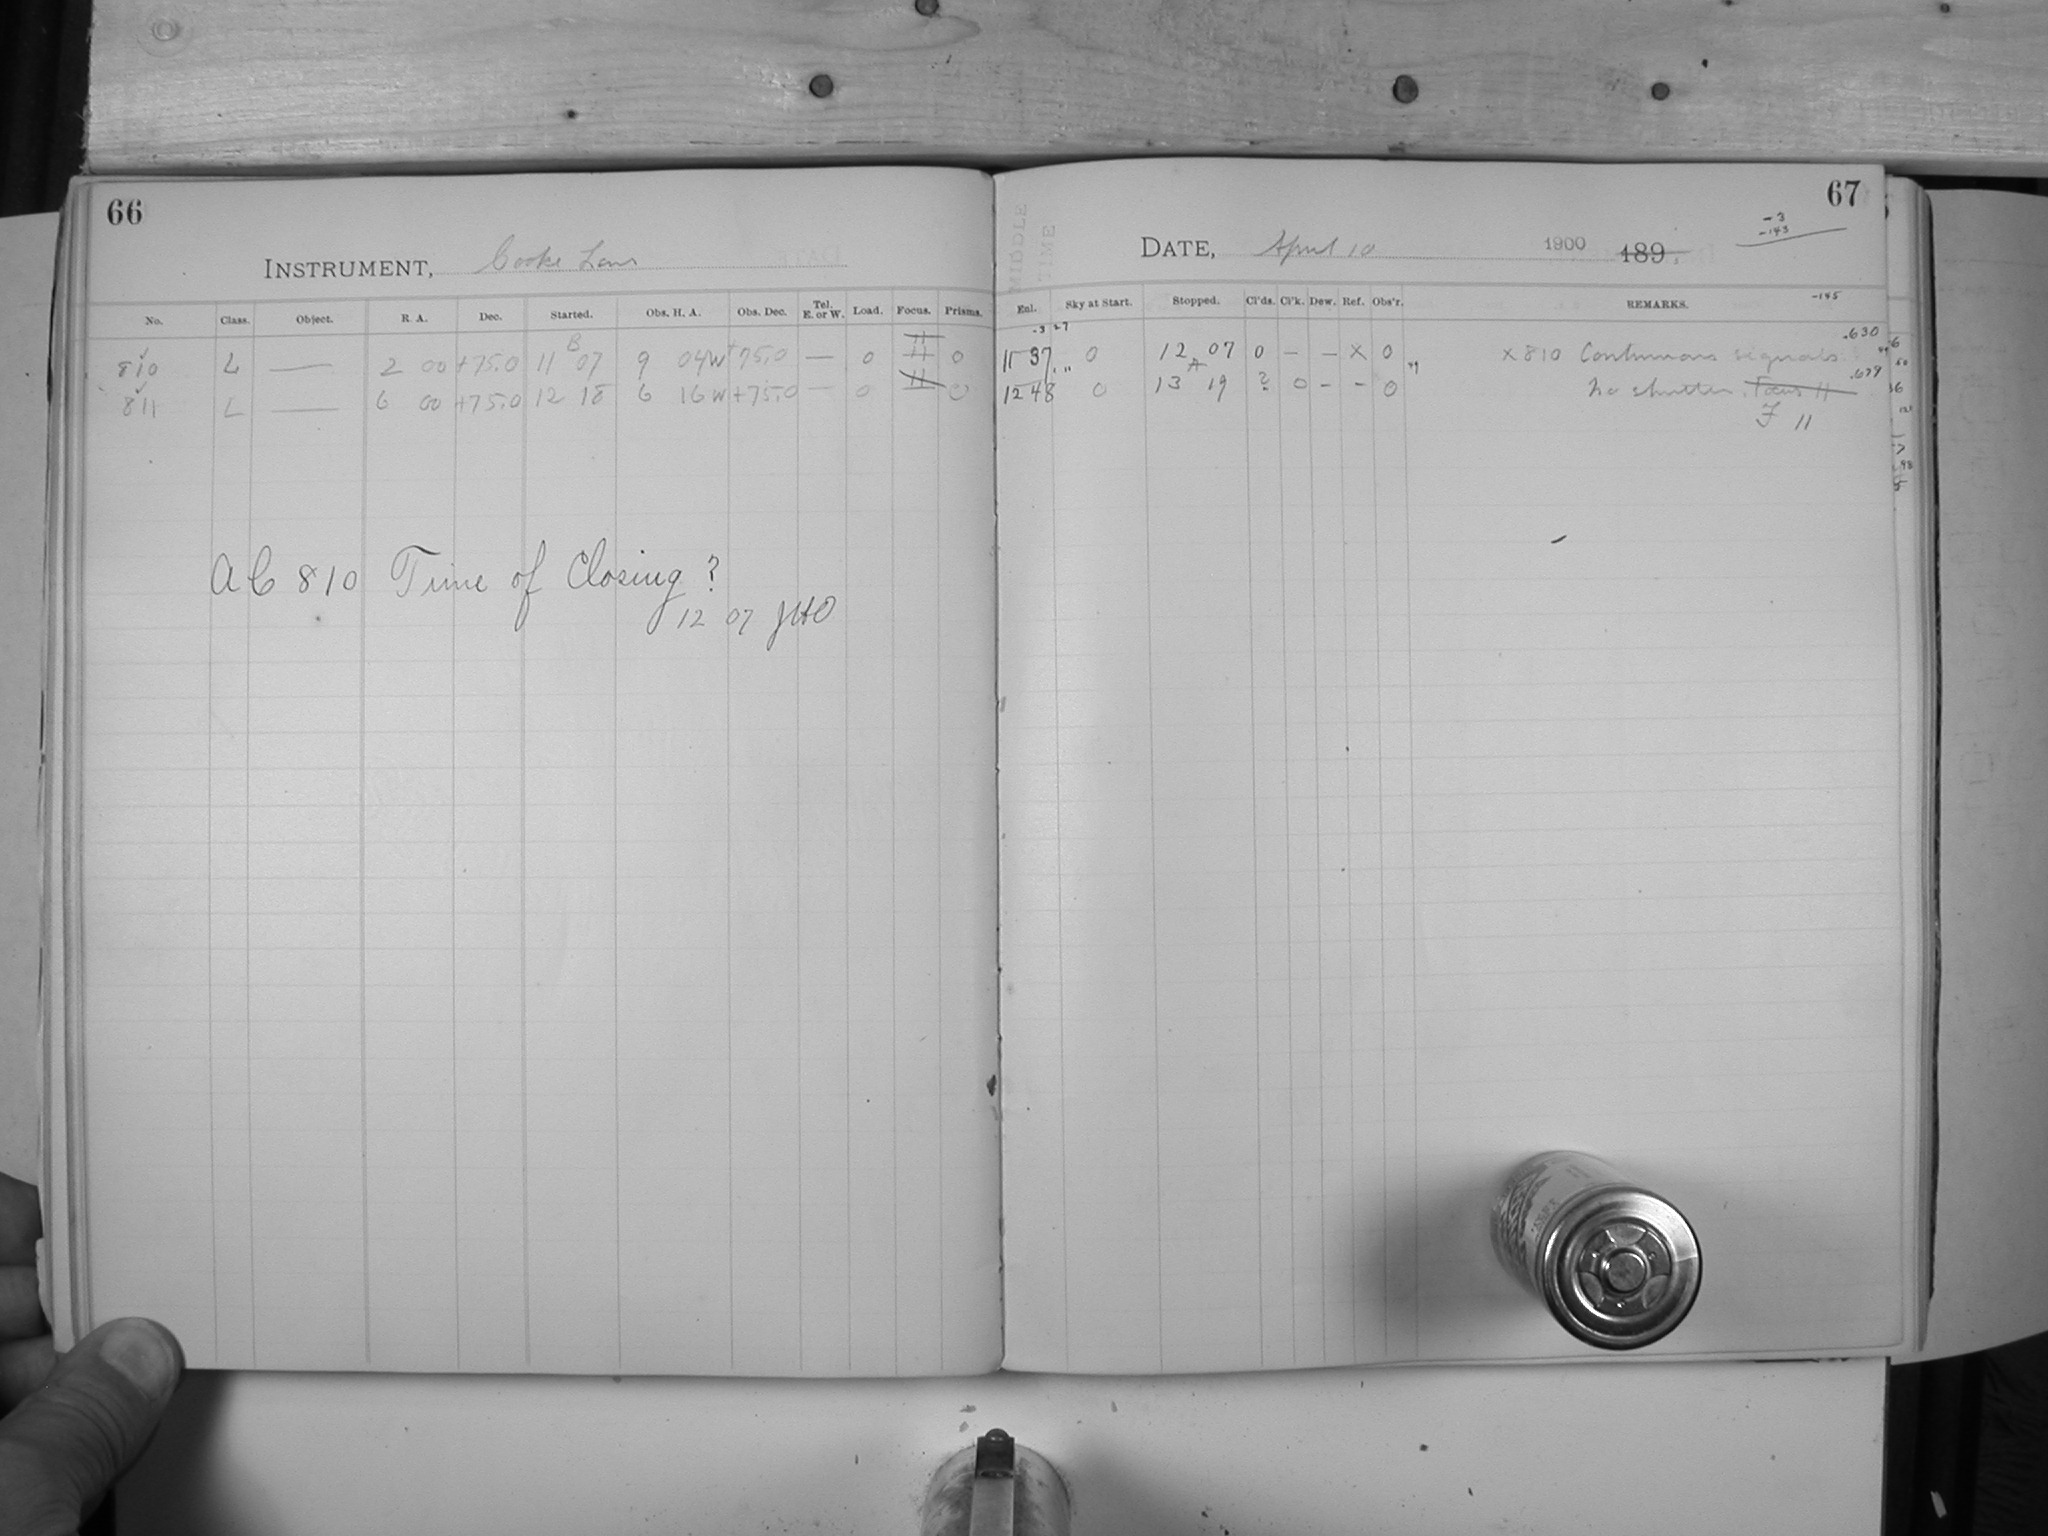 66
INSTRUMENT, Cooke Lens
No. Class. Object. R A. Dec. Started. Obs. H. A. Obs. Dec. Tel. E. or W. Load. Focus. Prisms.
810 L — 2 00 +75.0 11 07 9 04W +75.0 — 0 11 0
811 L — 6 00 +75.0 12 18 6 16W +75.0 — 0 11 0
AC 810 Time of Closing?
12 07 JHO
67
-3
-143
MIDDLE TIME
DATE, April 10 1900 189 .
Enl. Sky at Start. Stopped. Cl'ds. Cl'k. Dew. Ref. Obs'r. REMARKS. -145
-3 27 .630
11 37 0 12 07 0 — — X 0 X 810 Continuous signals.
.679
12 48 0 13 19 ? 0 - - 0 No shutter. Focus 11
F 11